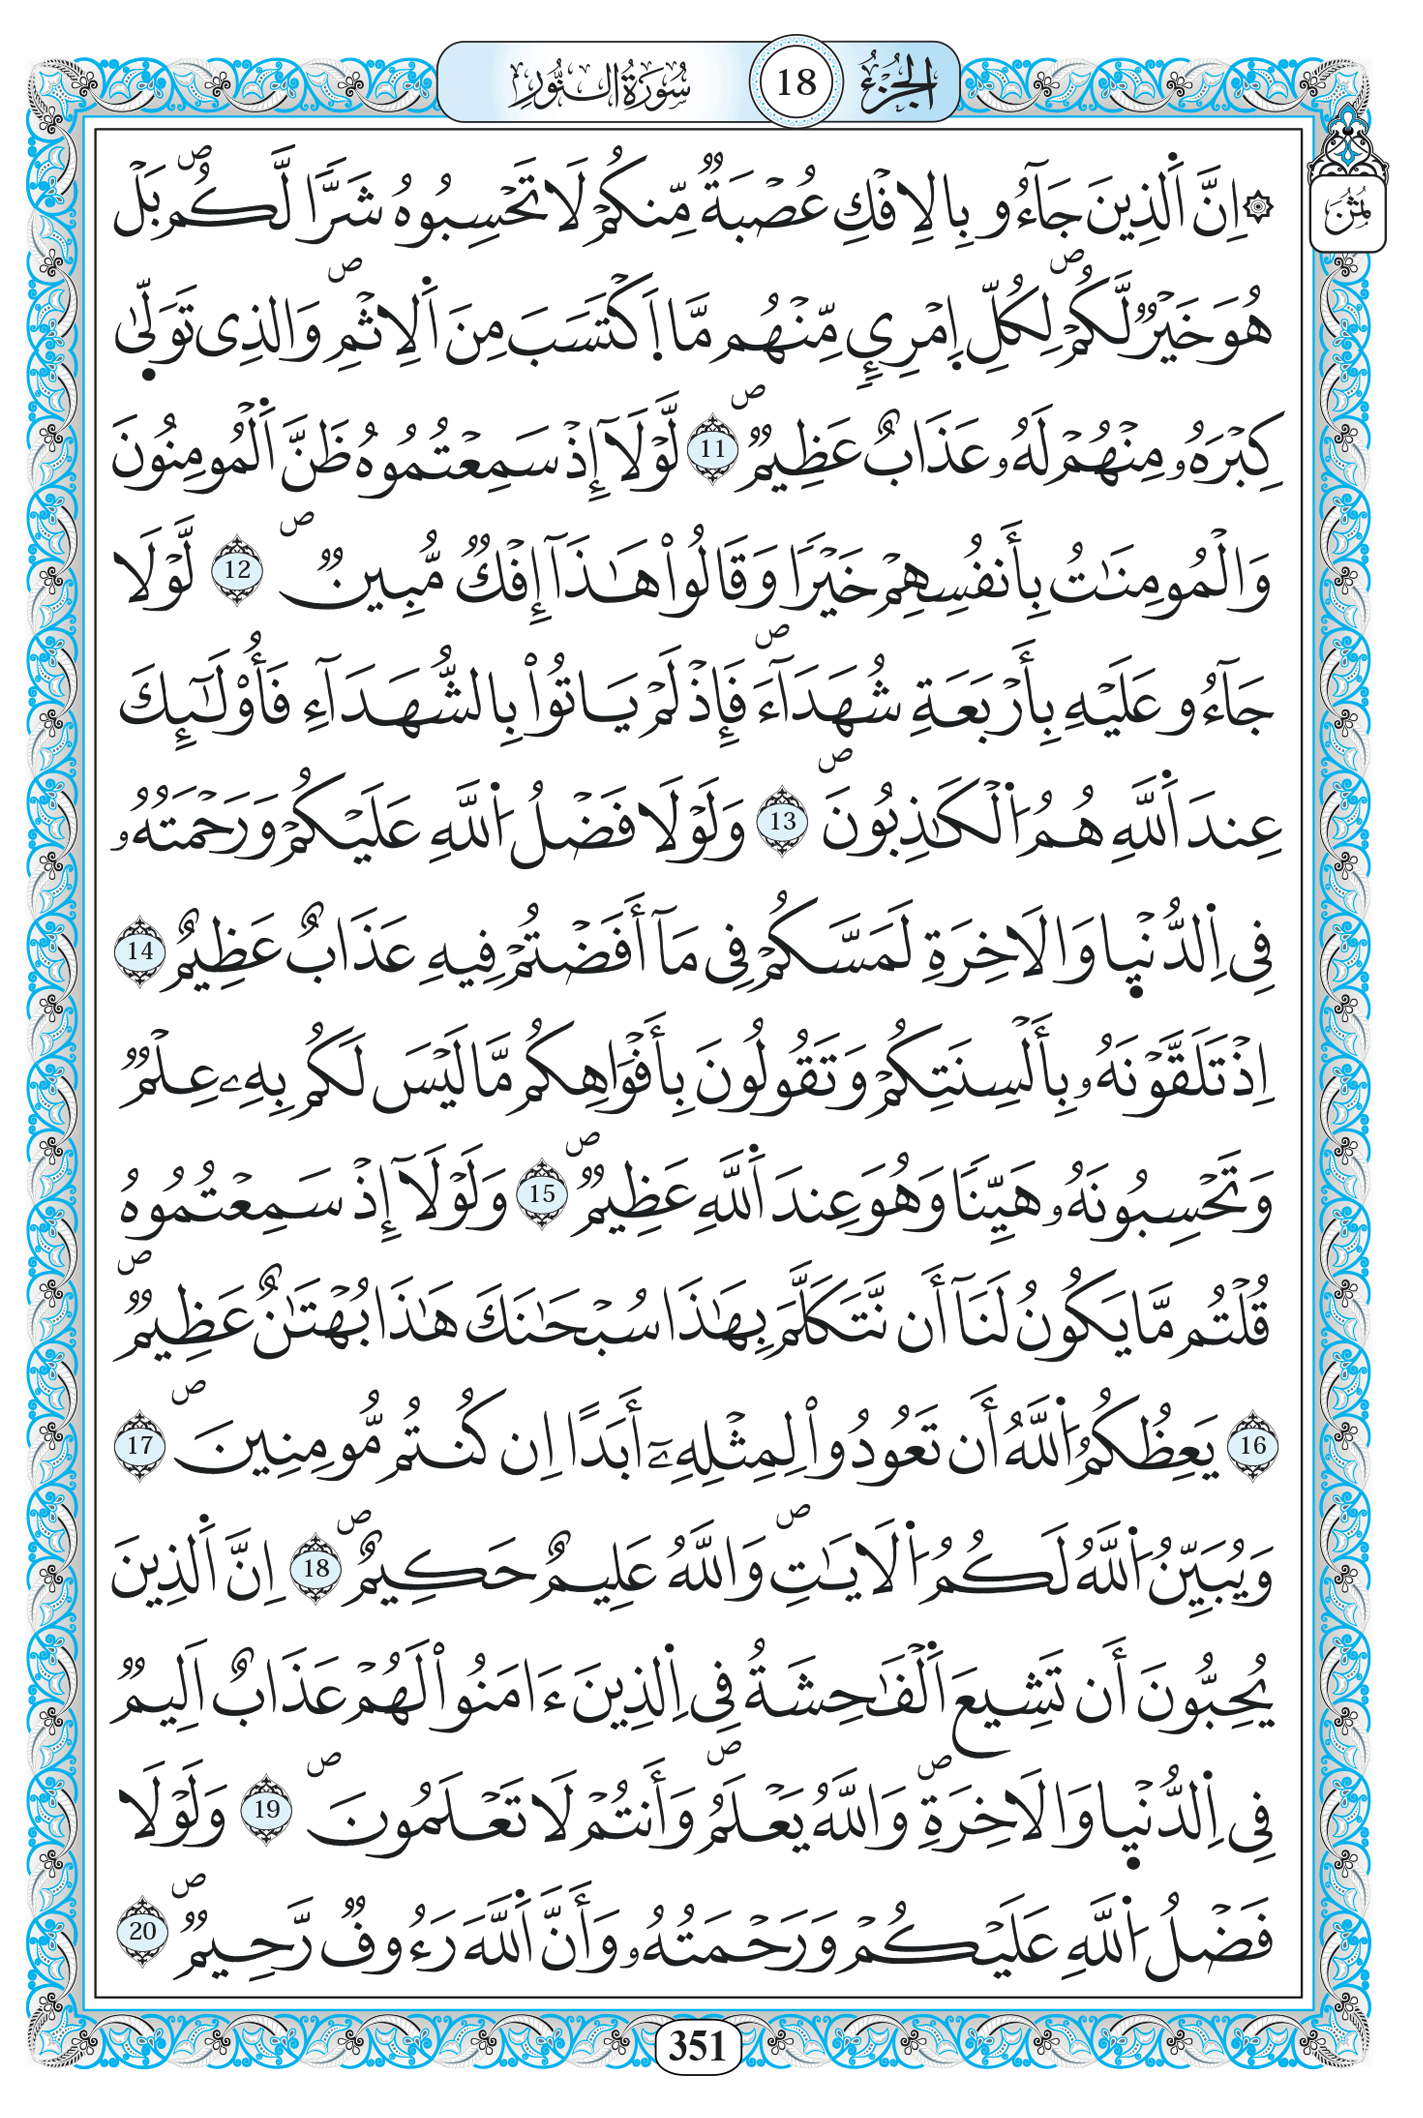 الجزء 18 سورة النور
ثمن
۞ اِنَّ اَ۬لذِينَ جَآءُو بِالِافْكِ عُصْبَةٞ مِّنكُمْ لَا تَحْسِبُوهُ شَرّاٗ لَّكُمۖ بَلْ
هُوَ خَيْرٞ لَّكُمْۖ لِكُلِّ اِ۪مْرِےٕٖ مِّنْهُم مَّا اَ۪كْتَسَبَ مِنَ اَ۬لِاثْمِۖ وَالذِى تَوَلّ۪ىٰ
كِبْرَهُۥ مِنْهُمْ لَهُۥ عَذَابٌ عَظِيمٞۖ 11 لَّوْلَآ إِذْ سَمِعْتُمُوهُ ظَنَّ اَ۬لْمُومِنُونَ
وَالْمُومِنَٰتُ بِأَنفُسِهِمْ خَيْراٗ وَقَالُواْ هَٰذَآ إِفْكٞ مُّبِينٞۖ 12 لَّوْلَا
جَآءُو عَلَيْهِ بِأَرْبَعَةِ شُهَدَآءَۖ فَإِذْ لَمْ يَاتُواْ بِالشُّهَدَآءِ فَأُوْلَٰٓئِكَ
عِندَ اَ۬للَّهِ هُمُ اُ۬لْكَٰذِبُونَۖ 13 وَلَوْلَا فَضْلُ اُ۬للَّهِ عَلَيْكُمْ وَرَحْمَتُهُۥ
فِى اِ۬لدُّنْي۪ا وَالَاخِرَةِ لَمَسَّكُمْ فِى مَآ أَفَضْتُمْ فِيهِ عَذَابٌ عَظِيمٌ 14
اِذْ تَلَقَّوْنَهُۥ بِأَلْسِنَتِكُمْ وَتَقُولُونَ بِأَفْوَاهِكُم مَّا لَيْسَ لَكُم بِهِۦ عِلْمٞ
وَتَحْسِبُونَهُۥ هَيِّناٗ وَهُوَ عِندَ اَ۬للَّهِ عَظِيمٞۖ 15 وَلَوْلَآ إِذْ سَمِعْتُمُوهُ
قُلْتُم مَّا يَكُونُ لَنَآ أَن نَّتَكَلَّمَ بِهَٰذَا سُبْحَٰنَكَ هَٰذَا بُهْتَٰنٌ عَظِيمٞۖ
16 يَعِظُكُمُ اُ۬للَّهُ أَن تَعُودُواْ لِمِثْلِهِۦٓ أَبَداً اِن كُنتُم مُّومِنِينَۖ 17
وَيُبَيِّنُ اُ۬للَّهُ لَكُمُ اُ۬لَايَٰتِۖ وَاللَّهُ عَلِيمٌ حَكِيمٌۖ 18 اِنَّ اَ۬لذِينَ
يُحِبُّونَ أَن تَشِيعَ اَ۬لْفَٰحِشَةُ فِى اِ۬لذِينَ ءَامَنُواْ لَهُمْ عَذَابٌ اَلِيمٞ
فِى اِ۬لدُّنْي۪ا وَالَاخِرَةِۖ وَاللَّهُ يَعْلَمُۖ وَأَنتُمْ لَا تَعْلَمُونَۖ 19 وَلَوْلَا
فَضْلُ اُ۬للَّهِ عَلَيْكُمْ وَرَحْمَتُهُۥ وَأَنَّ اَ۬للَّهَ رَءُوفٞ رَّحِيمٞۖ 20
351